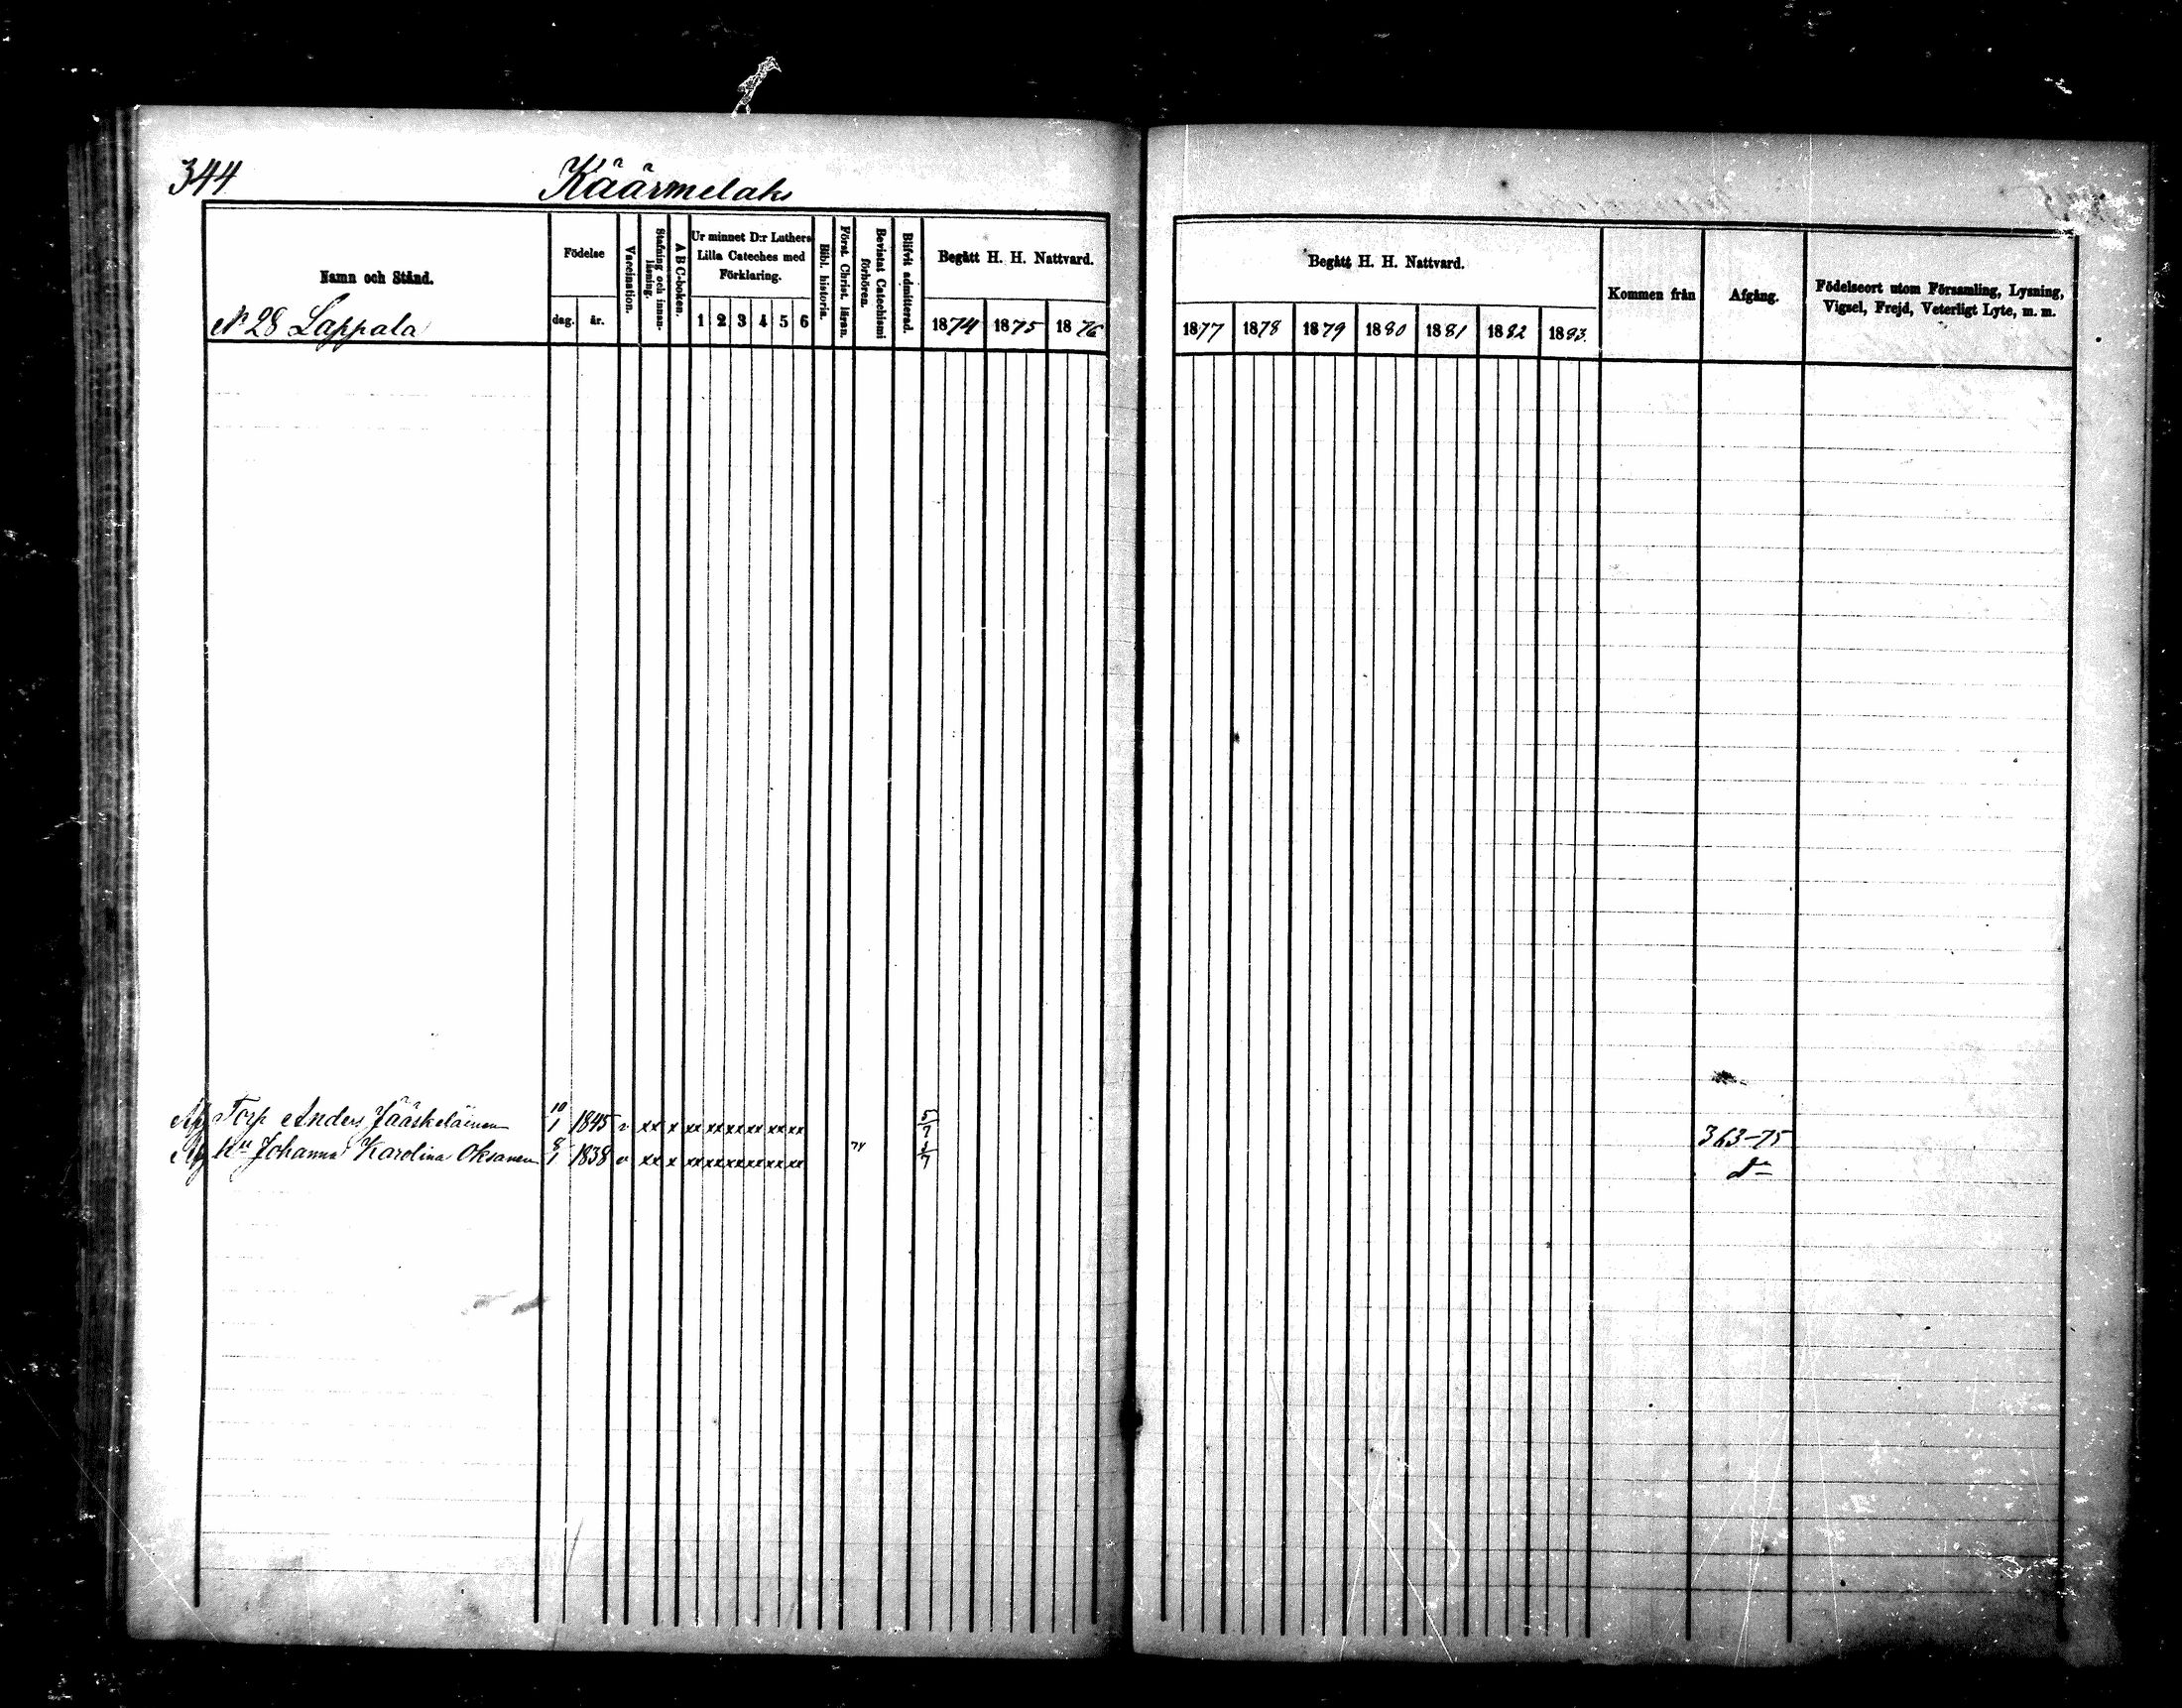 344
Käärmelaks
Namn och Stånd.
Födelse
dag.
år.
Vaccination.
Stafning och innan-läsning.
A B C-boken.
Ur minnet D:r Luthers
Lilla Cateches med
Förklaring.
1 2 3 4 5 6
Bibl. historia.
Först. Christ. läran.
Bevistat Catechismi förhören.
Blifvit admitterad.
Begått H. H. Nattvard.
1874 1875 1876
N 28 Lappala
Begått H. H. Nattvard.
1877 1878 1879 1880 1881 1882 1883.
Kommen från
Afgång.
Födelseort utom Församling, Lysning,
Vigsel, Frejd, Veterligt Lyte, m. m.
Afg Torp Anders Jääskeläinen 10/1 1845 v xx x xx xx xx xx xx xx 5/7 363-75
Afg hu Johanna Karolina Oksanen 8/1 1838 v xx x xx xx xx xx xx xx 74 d:o